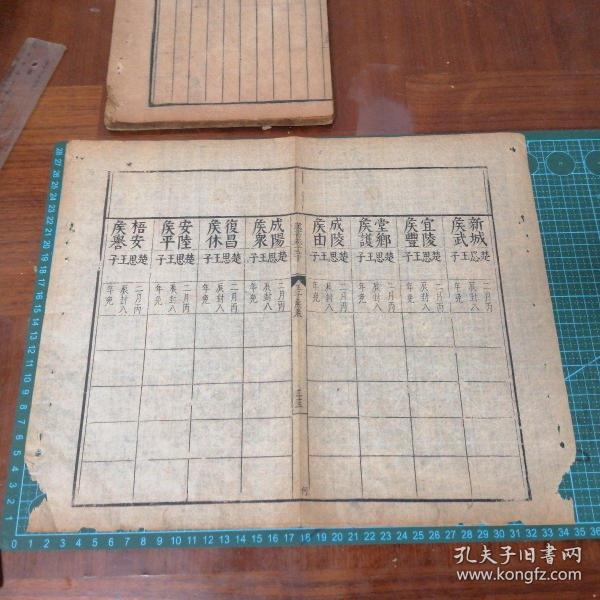 新城侯武 楚思王子 二月丙辰封八年免
宜陵侯豐 楚思王子
堂鄉侯護 楚思王子 二月丙辰封八年免
成陵侯由 楚思王子 二月丙辰封八年免
王子侯表
三十三
成陽侯眾 楚思王子 二月丙辰封八年免
復昌侯休 楚思王子 二月丙辰封八年免
安陸侯平 楚思王子 二月丙辰封八年免
梧安侯譽 楚思王子 二月丙辰封八年免
孔夫子旧书网
www.kongfz.com